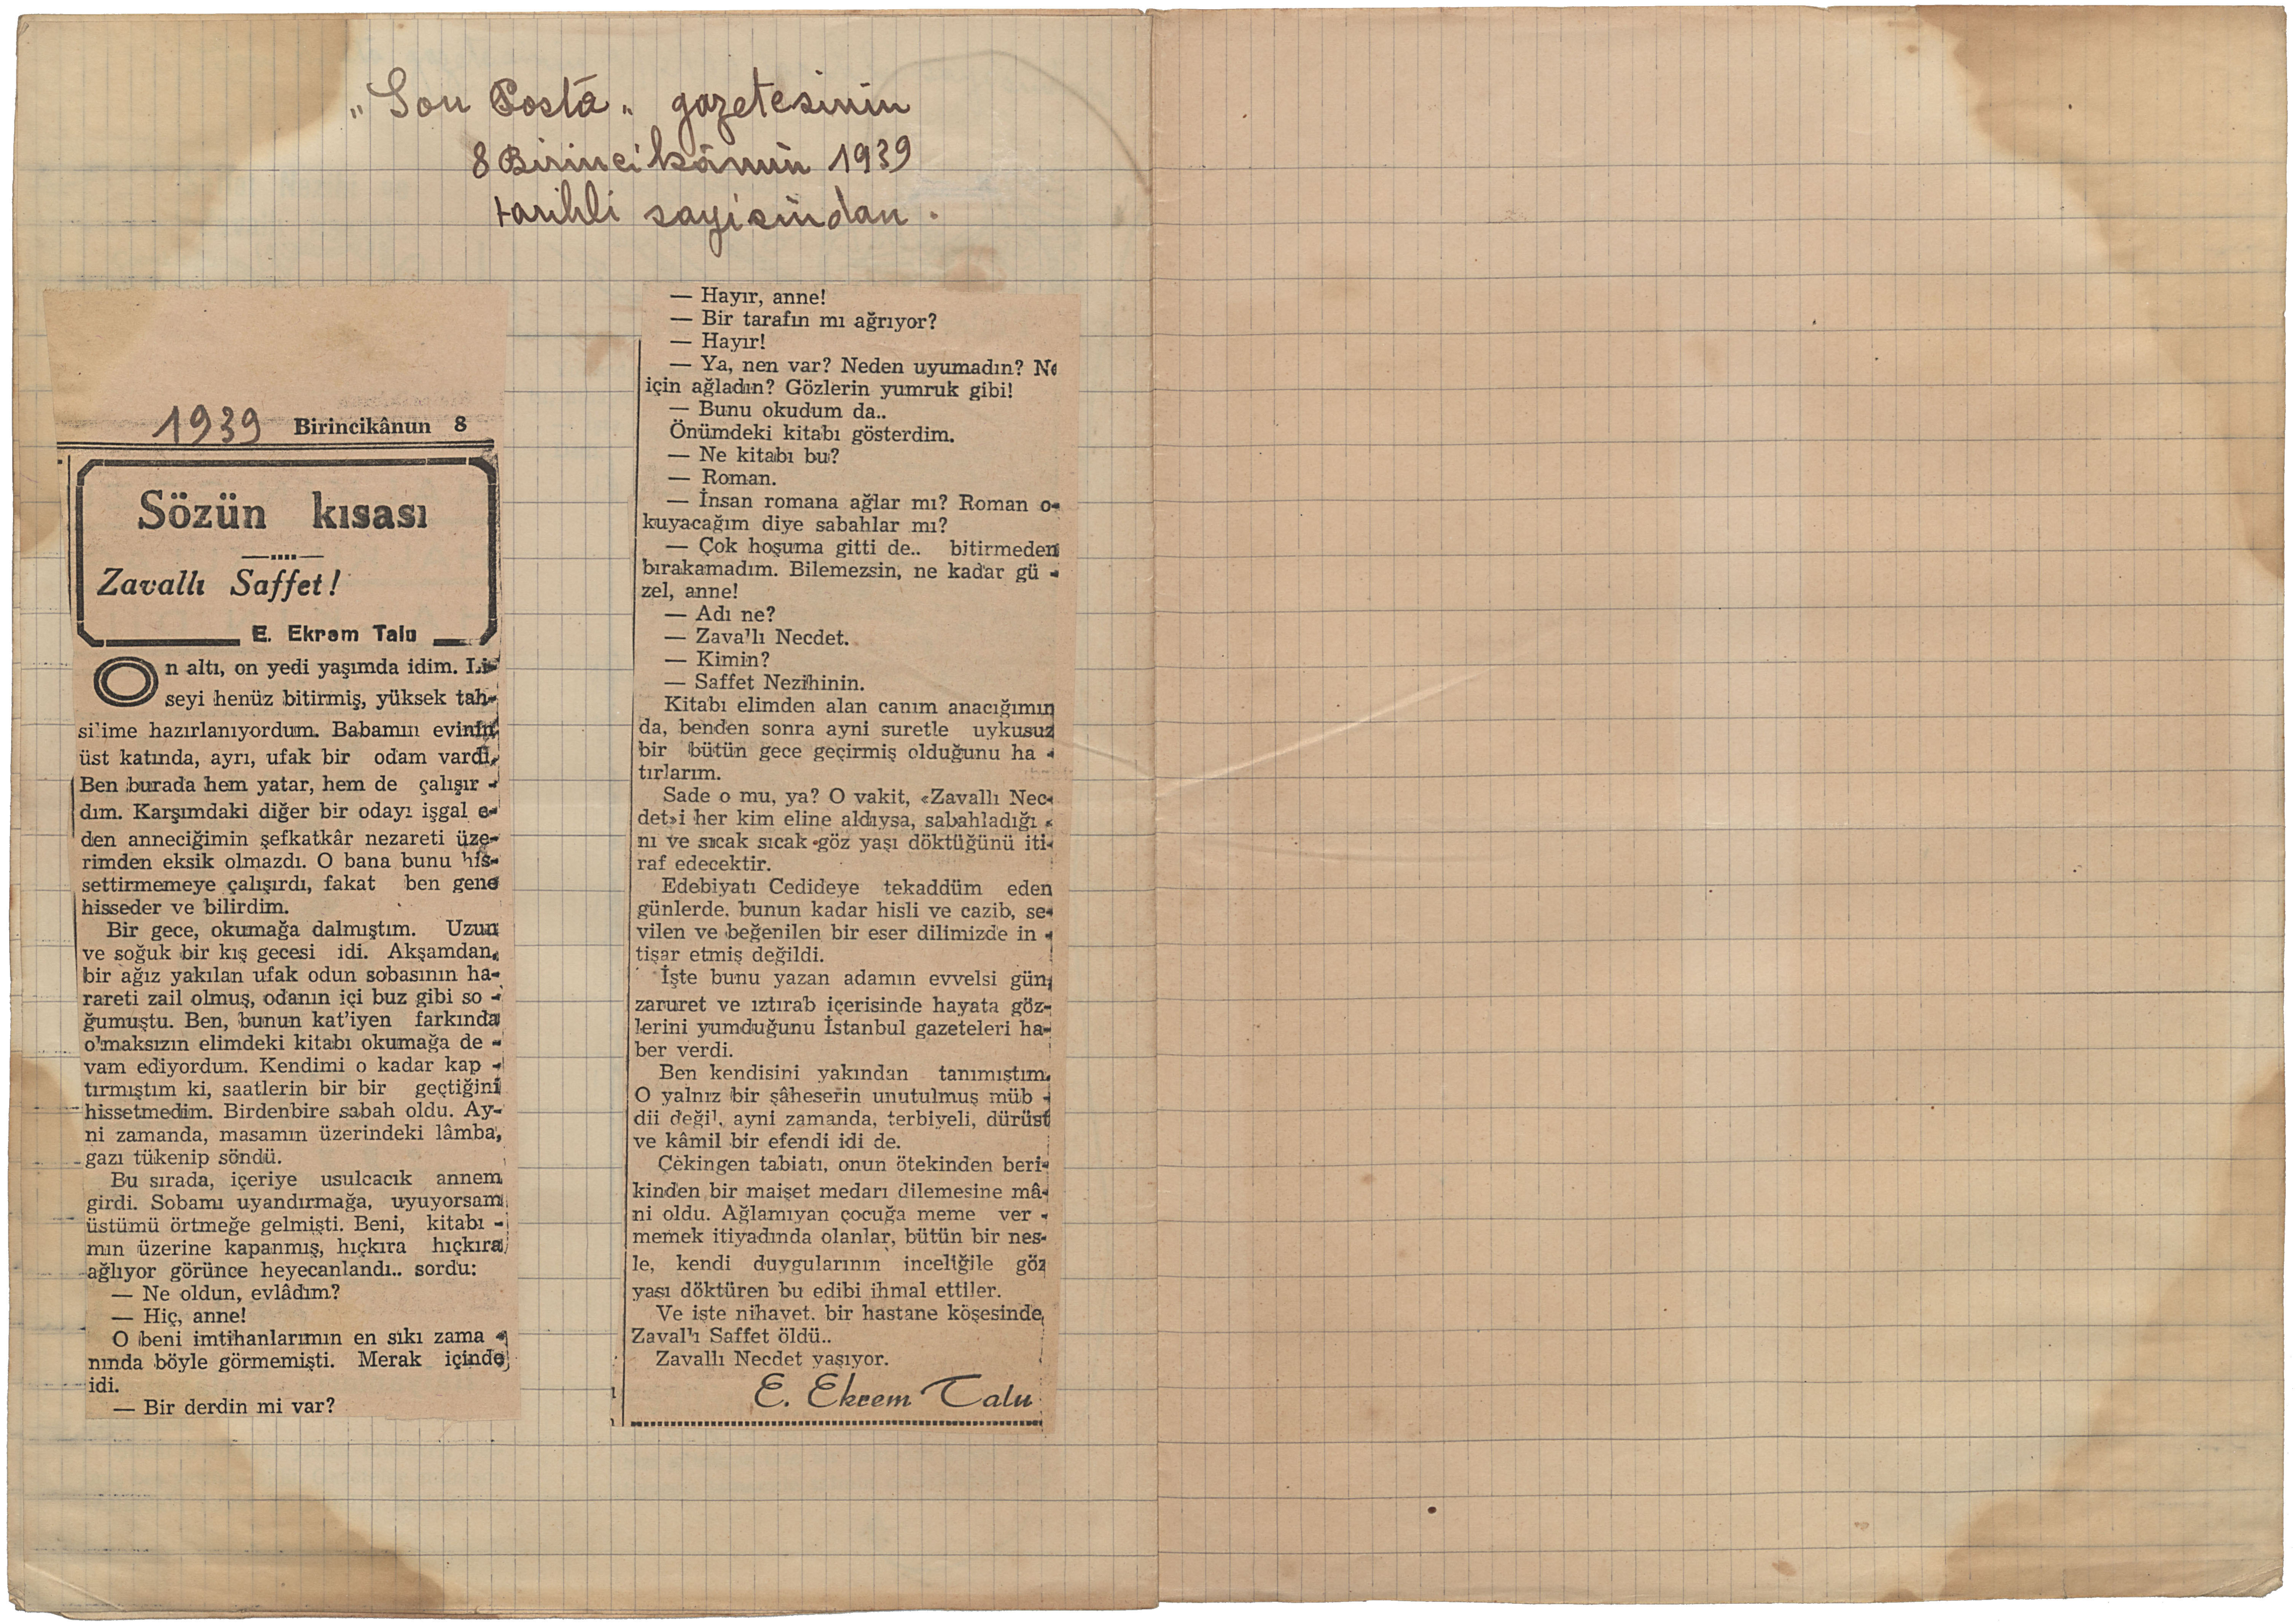 „Son Posta„ gazetesinin
8 Birincikânun 1939
tarihli sayisindan.
1939 Birincikânun 8
Sözün kısası
Zavallı Saffet!
E. Ekrem Talu
On altı, on yedi yaşımda idim. Li-
seyi henüz bitirmiş, yüksek tah-
silime hazırlanıyordum. Babamın evinin
üst katında, ayrı, ufak bir odam vardı.
Ben burada hem yatar, hem de çalışır -
dım. Karşımdaki diğer bir odayı işgal e-
den anneciğimin şefkatkâr nezareti üze-
rimden eksik olmazdı. O bana bunu his-
settirmemeye çalışırdı, fakat ben gene
hisseder ve bilirdim.
Bir gece, okumağa dalmıştım. Uzun
ve soğuk bir kış gecesi idi. Akşamdan,
bir ağız yakılan ufak odun sobasının ha-
rareti zail olmuş, odanın içi buz gibi so -
ğumuştu. Ben, bunun kat'iyen farkında
olmaksızın elimdeki kitabı okumağa de -
vam ediyordum. Kendimi o kadar kap -
tırmıştım ki, saatlerin bir bir geçtiğini
hissetmedim. Birdenbire sabah oldu. Ay-
ni zamanda, masamın üzerindeki lâmba,
gazı tükenip söndü.
Bu sırada, içeriye usulcacık annem
girdi. Sobamı uyandırmağa, uyuyorsam
üstümü örtmeğe gelmişti. Beni, kitabı -
mın üzerine kapanmış, hıçkıra hıçkıra
ağlıyor görünce heyecanlandı.. sordu:
— Ne oldun, evlâdım?
— Hiç, anne!
O beni imtihanlarımın en sıkı zama -
nında böyle görmemişti. Merak içinde
idi.
— Bir derdin mi var?
— Hayır, anne!
— Bir tarafın mı ağrıyor?
— Hayır!
— Ya, nen var? Neden uyumadın? Ne
için ağladın? Gözlerin yumruk gibi!
— Bunu okudum da..
Önümdeki kitabı gösterdim.
— Ne kitabı bu?
— Roman.
— İnsan romana ağlar mı? Roman o-
kuyacağım diye sabahlar mı?
— Çok hoşuma gitti de.. bitirmeden
bırakamadım. Bilemezsin, ne kadar gü -
zel, anne!
— Adı ne?
— Zava'lı Necdet.
— Kimin?
— Saffet Nezihinin.
Kitabı elimden alan canım anacığımın
da, benden sonra ayni suretle uykusuz
bir bütün gece geçirmiş olduğunu ha -
tırlarım.
Sade o mu, ya? O vakit, «Zavallı Nec-
det»i her kim eline aldıysa, sabahladığı -
nı ve sıcak sıcak göz yaşı döktüğünü iti-
raf edecektir.
Edebiyatı Cedideye tekaddüm eden
günlerde. bunun kadar hisli ve cazib, se-
vilen ve beğenilen bir eser dilimizde in -
tişar etmiş değildi.
İşte bunu yazan adamın evvelsi gün,
zaruret ve ıztırab içerisinde hayata göz-
lerini yumduğunu İstanbul gazeteleri ha-
ber verdi.
Ben kendisini yakından tanımıştım.
O yalnız bir şâheserin unutulmuş müb -
dii değil, ayni zamanda, terbiyeli, dürüst
ve kâmil bir efendi idi de.
Çekingen tabiatı, onun ötekinden beri-
kinden bir maişet medarı dilemesine mâ-
ni oldu. Ağlamıyan çocuğa meme ver -
memek itiyadında olanlar, bütün bir nes-
le, kendi duygularının inceliğile göz
yası döktüren bu edibi ihmal ettiler.
Ve işte nihayet. bir hastane köşesinde,
Zaval'ı Saffet öldü..
Zavallı Necdet yaşıyor.
E. Ekrem Talu